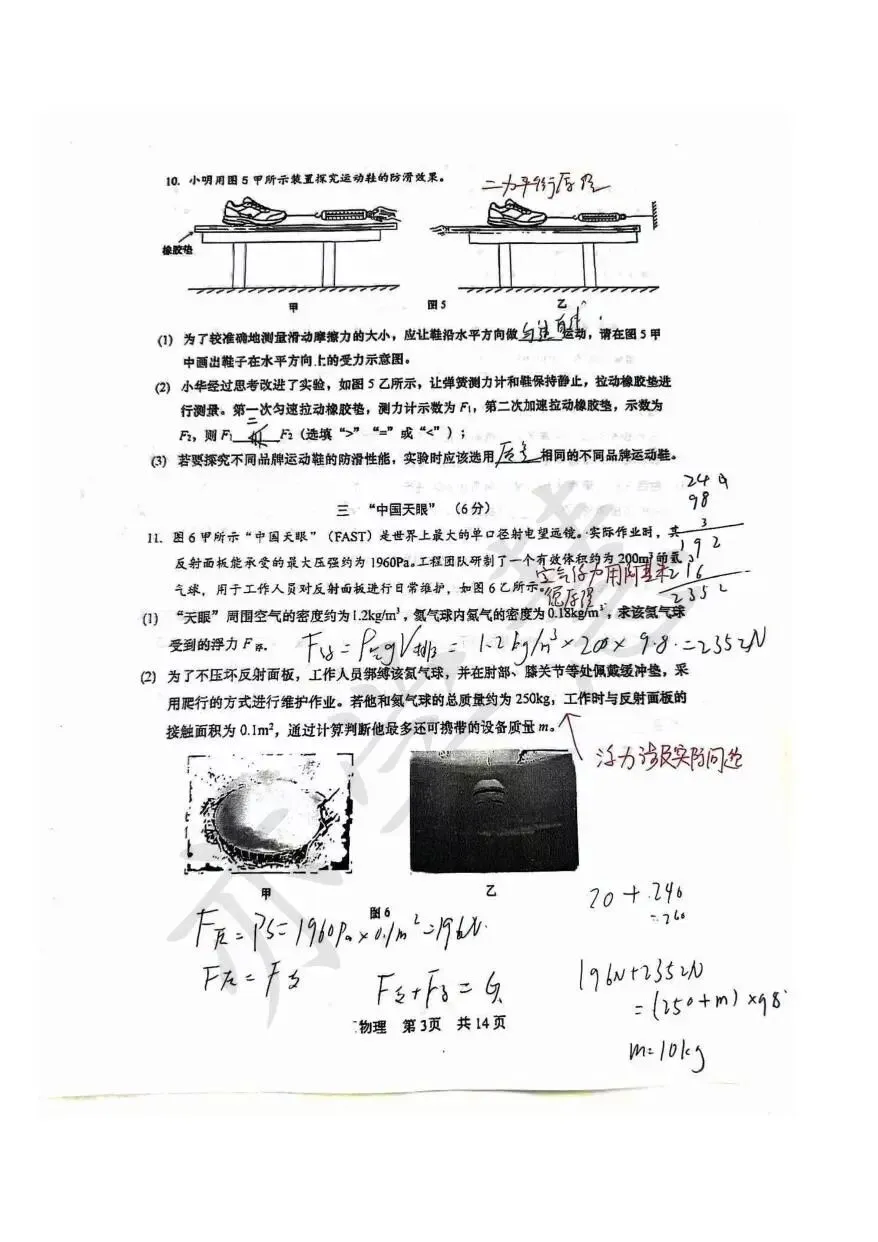 10. 小明用图 5 甲所示装置探究运动鞋的防滑效果。
橡胶垫
甲
图5
乙
(1) 为了较准确地测量滑动摩擦力的大小，应让鞋沿水平方向做匀速直线运动，请在图 5 甲
中画出鞋子在水平方向上的受力示意图。
(2) 小华经过思考改进了实验，如图 5 乙所示，让弹簧测力计和鞋保持静止，拉动橡胶垫进
行测量。第一次匀速拉动橡胶垫，测力计示数为 F₁，第二次加速拉动橡胶垫，示数为
F₂，则 F₁ 二 F₂（选填“>”“=”或“<”）；
(3) 若要探究不同品牌运动鞋的防滑性能，实验时应该选用 相同的不同品牌运动鞋。
98
三 “中国天眼”（6分）
3
11. 图 6 甲所示“中国天眼”（FAST）是世界上最大的单口径射电望远镜。实际作业时，其
192
反射面板能承受的最大压强约为 1960Pa。工程团队研制了一个有效体积约为 200m³ 的氦
216
气球，用于工作人员对反射面板进行日常维护，如图 6 乙所示。
空气浮力用阿基米
德原理
2352
(1) “天眼”周围空气的密度约为1.2kg/m³，氦气球内氦气的密度为0.18kg/m³，求该氦气球
受到的浮力 F浮。
F浮=ρ气gV排=1.2kg/m³×200×9.8=2352N
(2) 为了不压坏反射面板，工作人员绑缚该氦气球，并在肘部、膝关节等处佩戴缓冲垫，采
用爬行的方式进行维护作业。若他和氦气球的总质量约为 250kg，工作时与反射面板的
接触面积为 0.1m²，通过计算判断他最多还可携带的设备质量 m。
浮力涉及实际问题
甲
乙
图6
20+240
=260
F压=PS=1960Pa×0.1m²=196N
F压=F支
F支+F浮=G
196N+2352N
=(250+m)×9.8
m=10kg
物理 第3页 共14页